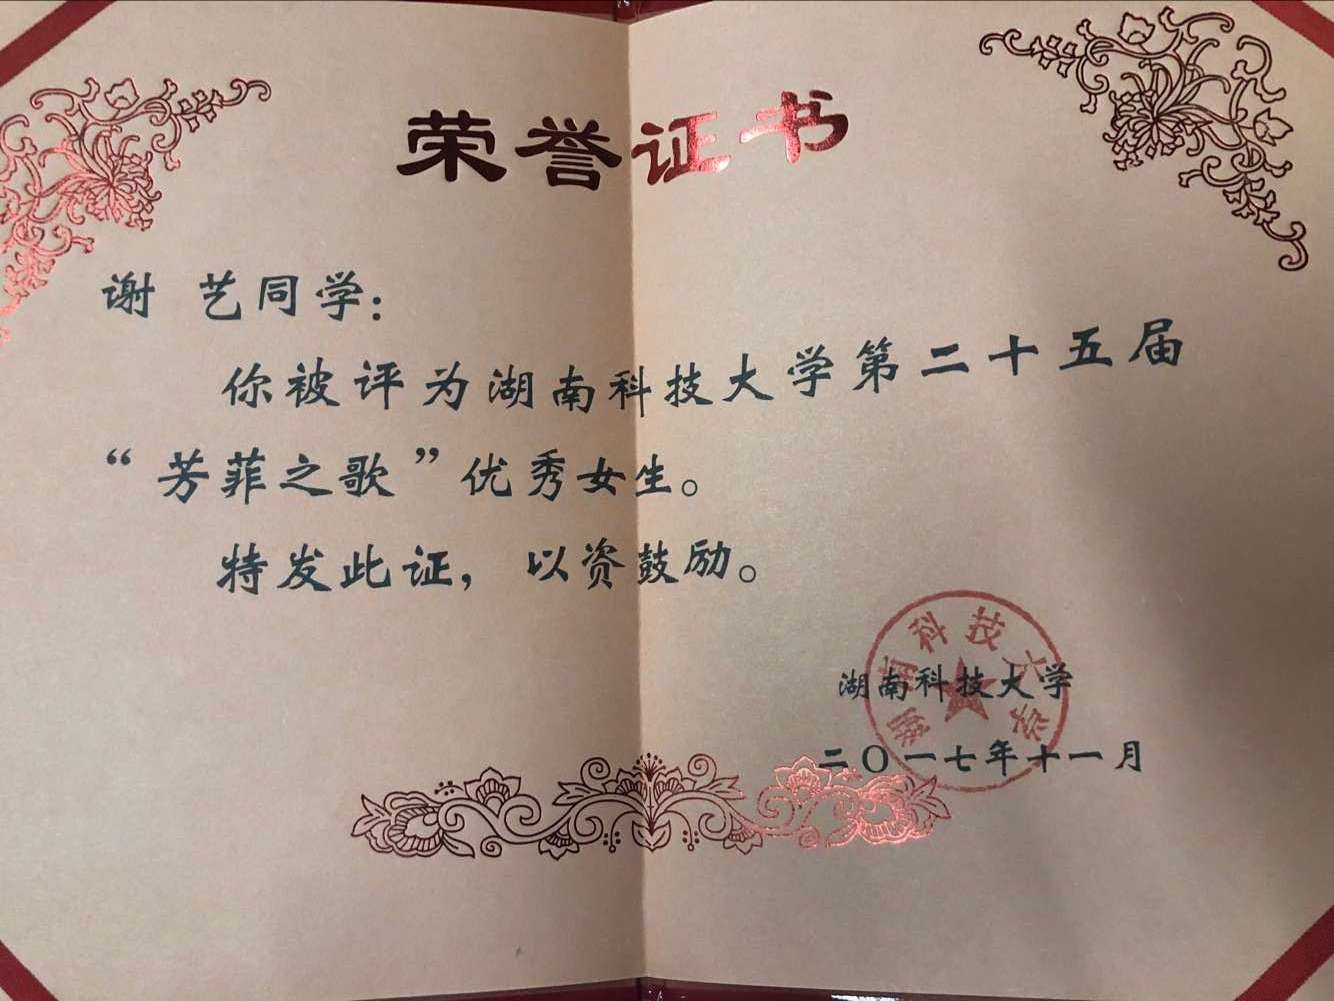 荣誉证书
谢 艺同学：
你被评为湖南科技大学第二十五届
“芳菲之歌”优秀女生。
特发此证，以资鼓励。
湖南科技大学
湖南科技大学
二〇一七年十一月